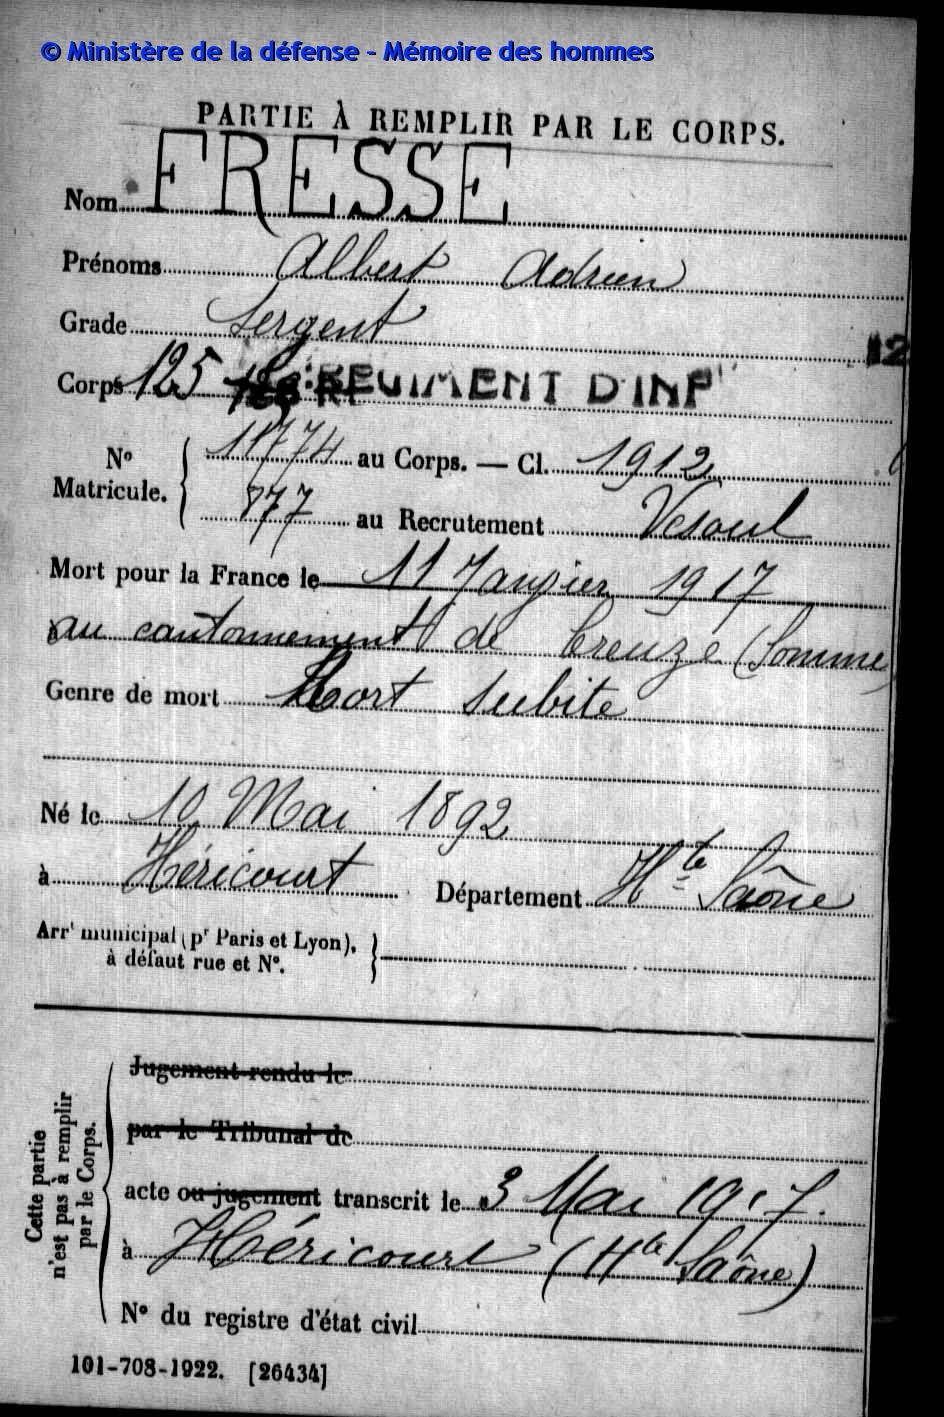 © Ministère de la défense - Mémoire des hommes
PARTIE À REMPLIR PAR LE CORPS.
Nom FRESSE
Prénoms Albert Adrien
Grade Sergent
12
Corps 125 RÉGIMENT D'INF
Nº Matricule. 11774 au Corps. — Cl. 1912
777 au Recrutement Vesoul
Mort pour la France le 11 Janvier 1917
au cantonnement de Creuze (Somme)
Genre de mort Mort subite
Né le 10 Mai 1892
à Héricourt Département Hte Saône
Arrt municipal (pr Paris et Lyon),
à défaut rue et Nº.
Cette partie
n'est pas à remplir
par le Corps.
Jugement rendu le
par le Tribunal de
acte ou jugement transcrit le 3 Mai 1917.
à Héricourt (Hte Saône)
Nº du registre d'état civil
101-708-1922. [26434]